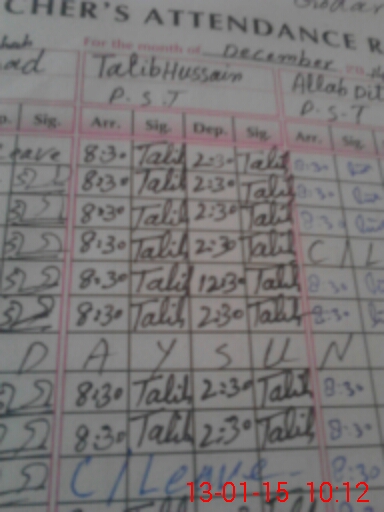 CHER'S ATTENDANCE R
For the month of December
ad Talib Hussain Allah Dit
P.S.T P.S.T
p. Sig. Arr. Sig. Dep. Sig. Arr. Sig.
Leave 8:30 Talib 2:30 Talib 8:30
8:30 Talib 2:30 Talib 8:30
8:30 Talib 2:30 Talib 8:30
8:30 Talib 2:30 Talib C/L
8:30 Talib 12:30 Talib 8:30
8:30 Talib 2:30 Talib 8:30
D A Y S U N
8:30 Talib 2:30 Talib 8:30
8:30 Talib 2:30 Talib 8:30
C/Leave 8:30
13-01-15 10:12